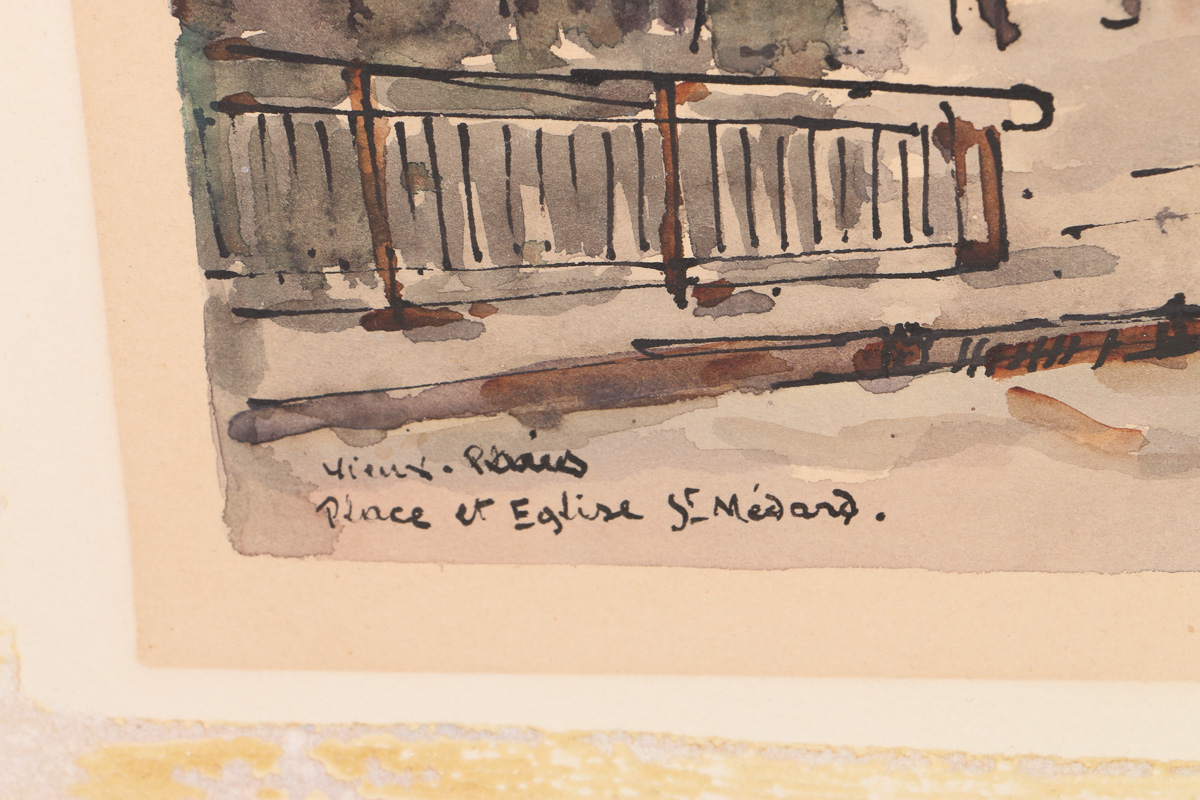 Vieux. Paris
Place et Eglise St Médard.